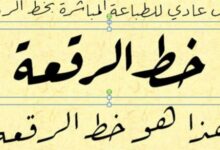 عادي للطباعة المباشرة بخط الر
خط الرقعة
هذا هو خط الرقعة